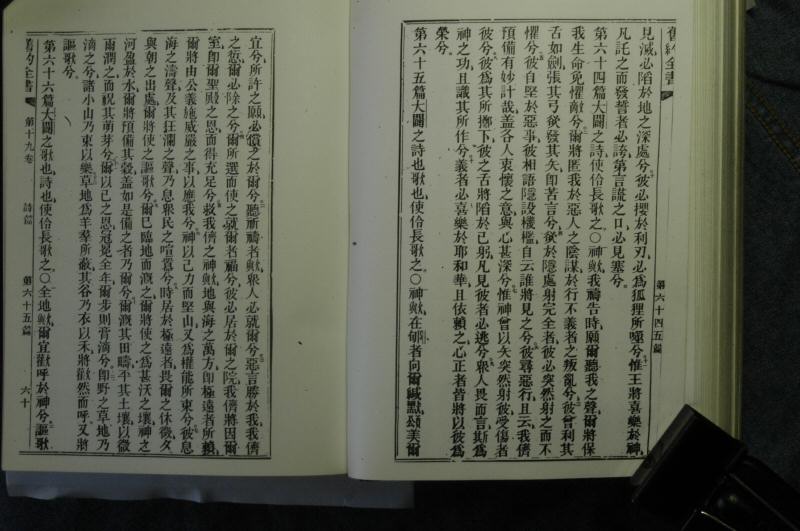 舊約全書
第六十四五篇
見滅必陷於地之深處兮彼必攖於利刃必爲狐狸所噬兮惟王將喜樂於神
凡託之而發誓者必誇第言謊之口必見塞兮
第六十四篇大闢之詩使伶長歌之○神歟我禱告時願爾聽我之聲爾將保
我生命免懼敵兮爾將匿我於惡人之陰謀於行不義者之叛亂兮彼曾利其
舌如劍張其弓發其矢即苦言兮於隱處射完全者彼必突然射之而不
懼兮彼自堅於惡事彼相語隱設機檻自云誰將見之兮彼尋惡行且云我儕
預備有妙計哉蓋各人衷懷之意與心甚深兮惟神曾以矢突然射彼受傷者
彼兮彼爲其所擲下彼之舌將陷於己躬凡見彼者必逃兮衆人畏而言斯爲
神之功且識其所作兮義者必喜樂於耶和華且依賴之心正者皆將以彼爲
榮兮
第六十五篇大闢之詩也歌也使伶長歌之○神歟在郇者向爾緘默頌美爾
宜兮所許之願必償之於爾兮聽祈禱者歟衆人必就爾兮惡言勝於我我儕
之愆爾必除之兮爾所選而使之就爾者福兮彼必居於爾之院我儕將因爾
室即爾聖殿之恩而得充足兮救我儕之神歟地與海之萬方即極遠者所賴
爾將由公義施威嚴之事以應我兮神以己力而堅山又爲權能所束兮彼息
海之濤聲及其狂瀾之聲乃息衆民之喧囂兮時居於極遠者畏爾之休徵爻
與朝之出處爾將使之謳歌兮爾已臨地而溉之爾將使之爲甚沃之壤神之
河盈於水爾將預備其穀蓋如是備之者乃爾兮爾溉其田疇平其土壤以微
雨潤之而祝其萌芽兮爾以己之恩冠冕全年爾步則膏滴兮即野之草地乃
滴之兮諸小山乃束以樂草地爲羊羣所蔽其谷乃衣以禾將歡然而呼又將
謳歌兮
第六十六篇大闢之歌也詩也使伶長歌之○全地歟爾宜歡呼於神兮謳歌
舊約全書
第十九卷
詩篇
第六十五篇
六十